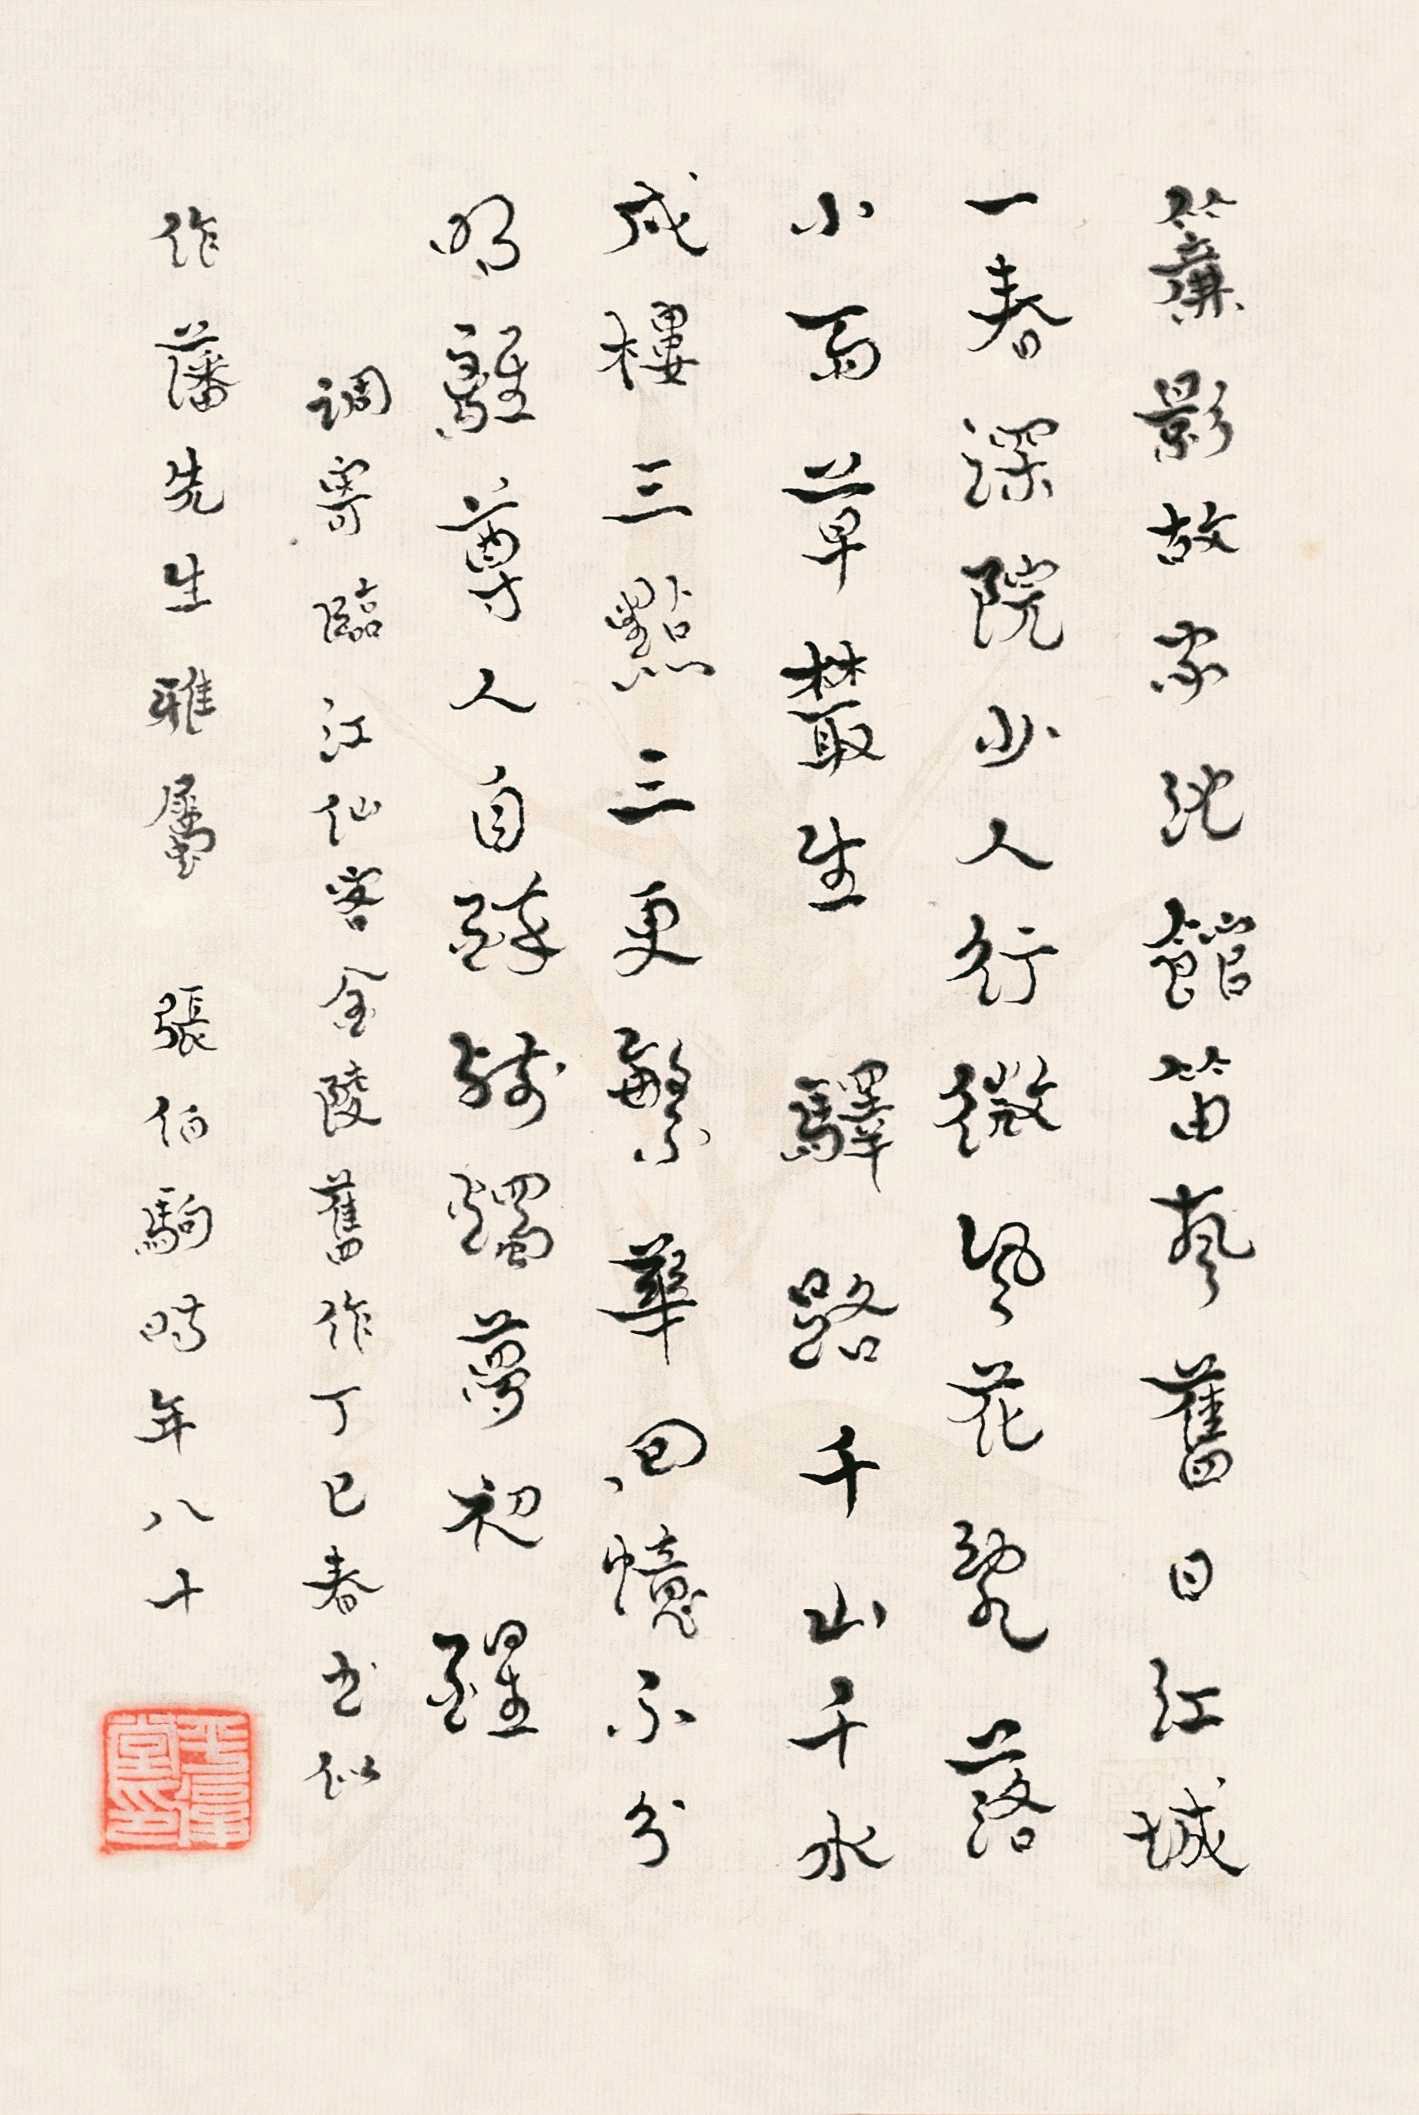 簾影故家池館笛聲舊日江城
一春深院少人行微風花亂落
小雨草叢生 驛路千山千水
戍樓三點三更繁華回憶不分
明離尊人自醉殘燭夢初醒
調寄臨江仙客金陵舊作丁巳春書似
作藩先生雅屬 張伯駒時年八十
平復堂印